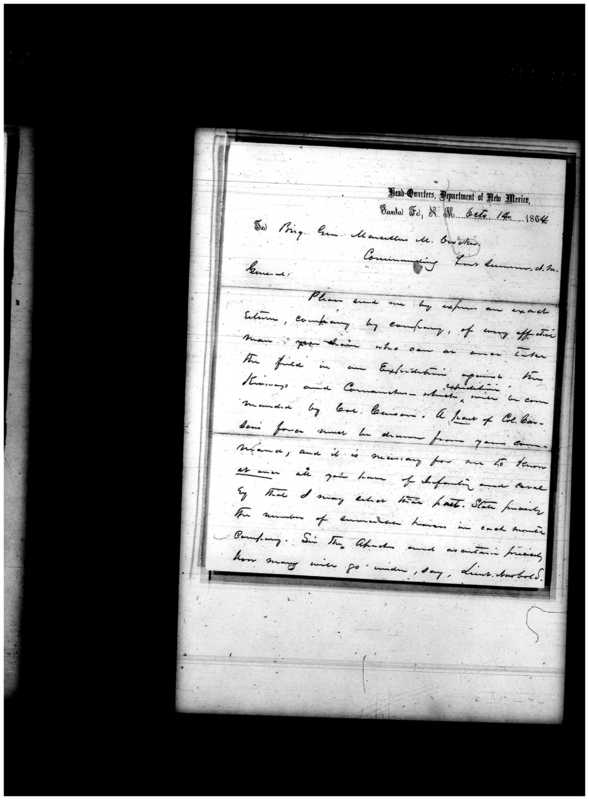 Head-Quarters, Department of New Mexico,
Santa Fé, N. M. Octo. 14 1864
To Brig. Gen. Marcellus M. Crocker
Commanding Fort Sumner, N.M.
General:
Please send me by express an exact
return, company by company, of every effective
man who can at once take
the field in an Expedition against the
Kiowas and Comanches which expedition will be com
manded by Col. Carson. A part of Col. Car-
son's force must be drawn from your com-
mand, and it is necessary for me to know
at once all your force of Infantry and Caval
ry that I may select that part. State precisely
the number of serviceable horses in each mounted
company. See the Apaches and ascertain precisely
how many will go under, say, Lieut. Newbold.